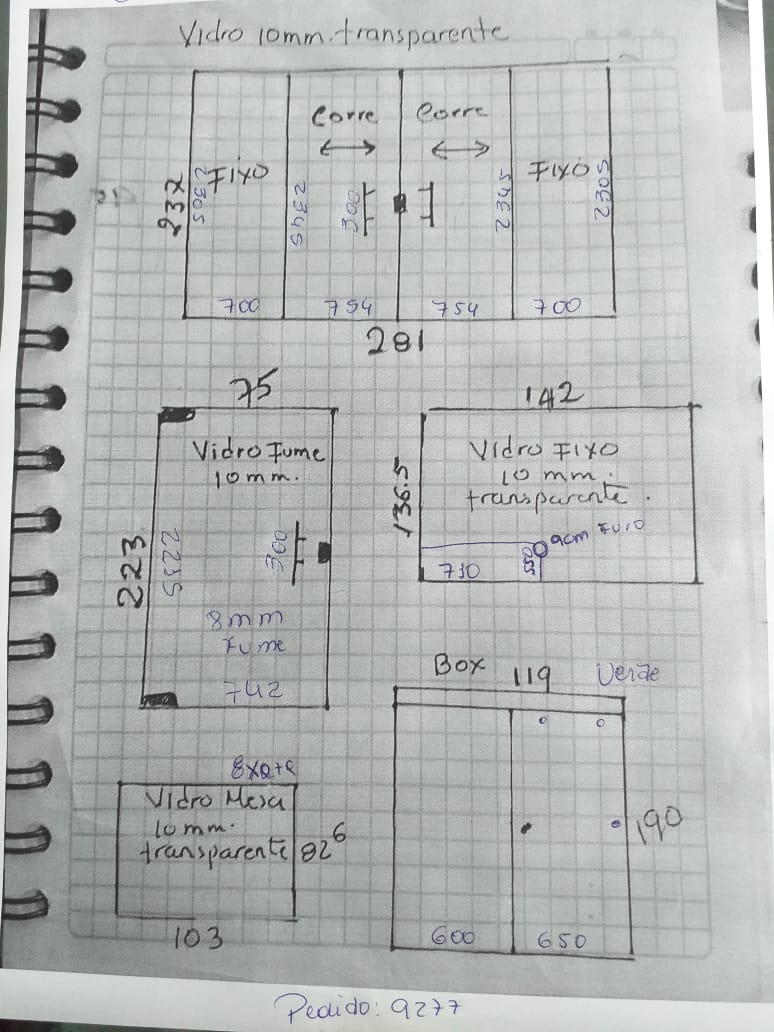 Vidro 10mm. transparente
Corre Corre
Fixo Fixo
237 2305 2345 300 2345 2305
700 754 754 700
281
75
Vidro Fume
10mm.
223 2235 300
8mm
Fume
742
142
Vidro Fixo
10 mm.
transparente.
136.5
9cm Furo
710
Box 119 Verde
190
600 650
Vidro Mesa
10mm.
transparente 82 6
103
Pedido: 9277